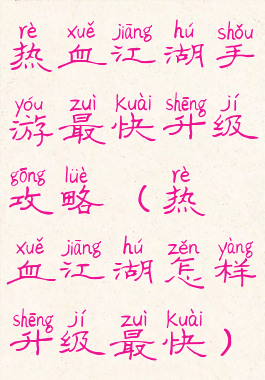 rè xuě jiāng hú shǒu
热血江湖手
yóu zuì kuài shēng jí
游最快升级
gōng lüè rè
攻略（热
xuě jiāng hú zěn yàng
血江湖怎样
shēng jí zuì kuài
升级最快）